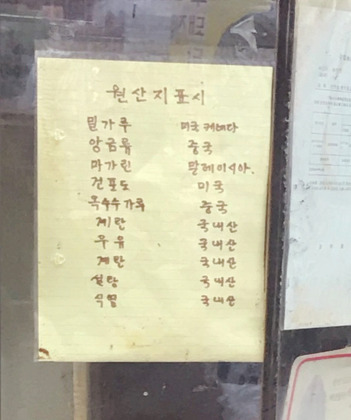 원산지표시
밀가루 미국 케네다
앙금류 중국
마가린 말레이시아.
건포도 미국
옥수수가루 중국
계란 국내산
우유 국내산
계란 국내산
설탕 국내산
식염 국내산